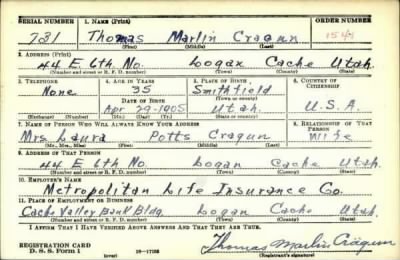 SERIAL NUMBER 1. NAME (Print) ORDER NUMBER
731 Thomas Marlin Cragun 1541
(First) (Middle) (Last)
2. ADDRESS (Print)
44 E. 6th No. Logan Cache Utah.
(Number and street or R. F. D. number) (Town) (County) (State)
3. TELEPHONE 4. AGE IN YEARS 5. PLACE OF BIRTH 6. COUNTRY OF CITIZENSHIP
None 35 Smithfield
(Town or county)
DATE OF BIRTH
Apr 29-1905 Utah. U.S.A.
(Exchange) (Number) (Mo.) (Day) (Yr.) (State or country)
7. NAME OF PERSON WHO WILL ALWAYS KNOW YOUR ADDRESS 8. RELATIONSHIP OF THAT PERSON
Mrs. Laura Potts Cragun Wife
(Mr., Mrs., Miss) (First) (Middle) (Last)
9. ADDRESS OF THAT PERSON
44 E. 6th No. Logan Cache Utah.
(Number and street or R. F. D. number) (Town) (County) (State)
10. EMPLOYER'S NAME
Metropolitan Life Insurance Co.
11. PLACE OF EMPLOYMENT OR BUSINESS
Cache Valley Bank Bldg. Logan Cache Utah.
(Number and street or R. F. D. number) (Town) (County) (State)
I AFFIRM THAT I HAVE VERIFIED ABOVE ANSWERS AND THAT THEY ARE TRUE.
REGISTRATION CARD
D. S. S. Form 1 (over) Thomas Marlin Cragun
(Registrant's signature)